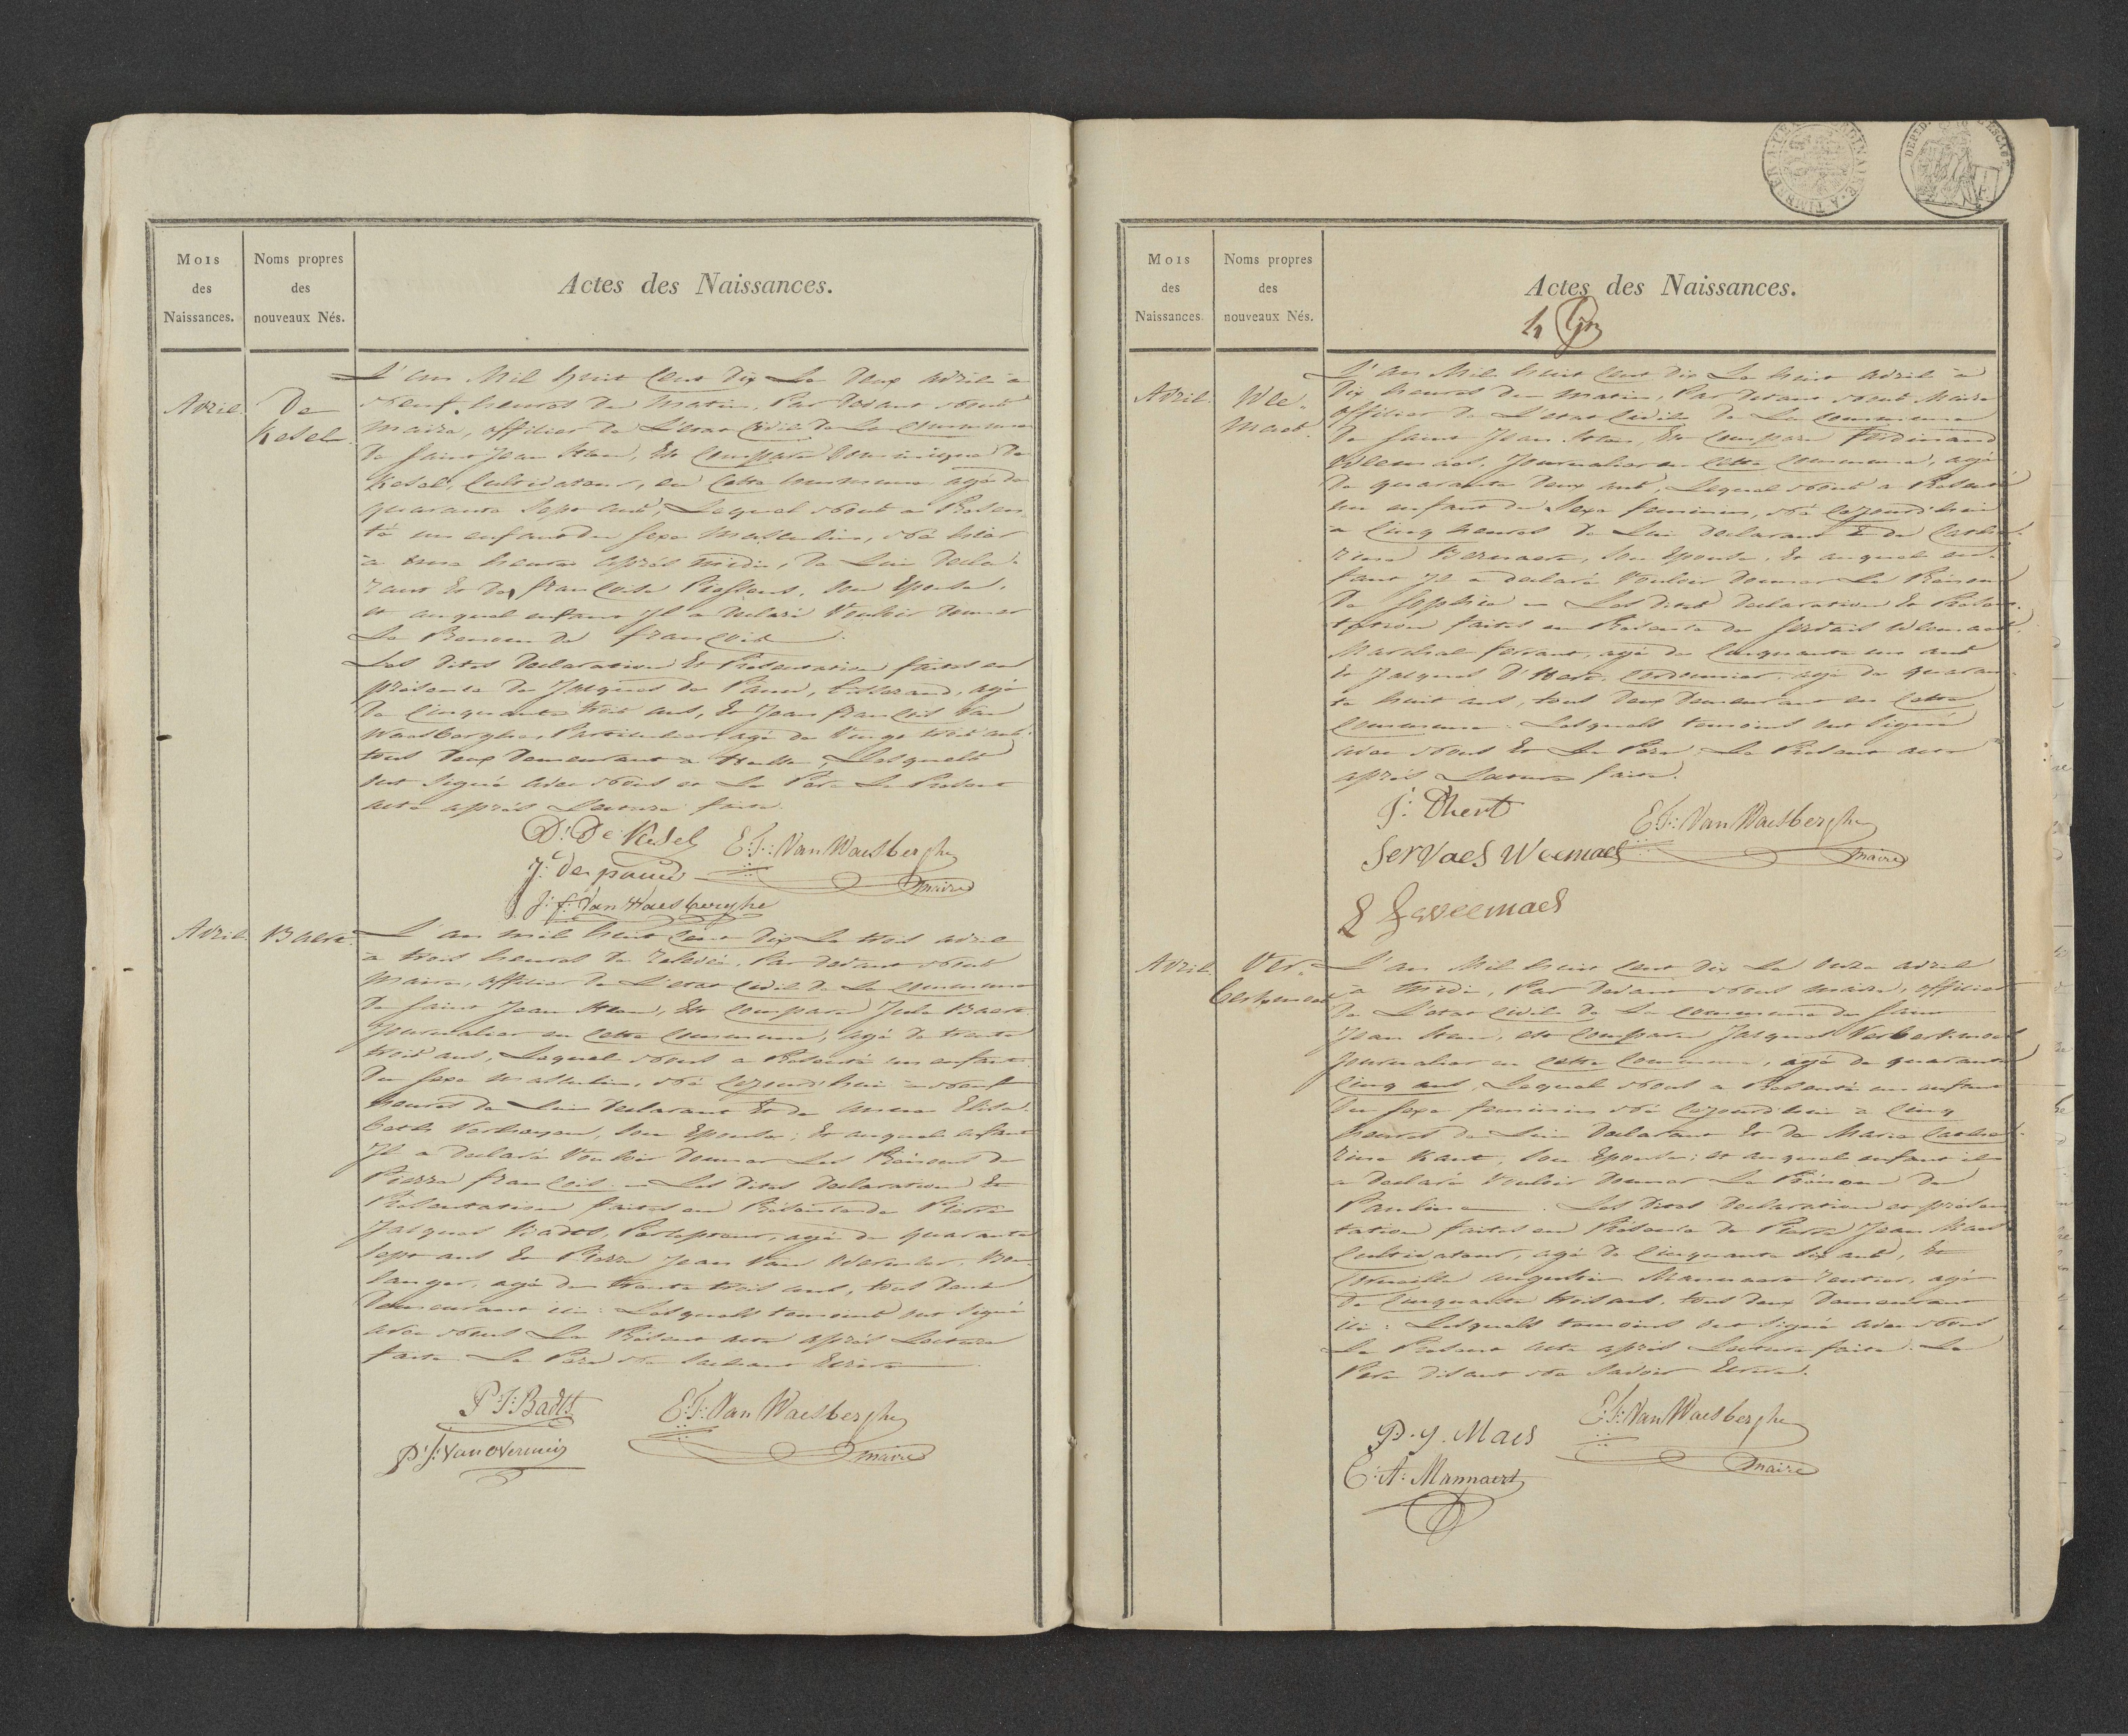 Mois
des
Naissances.
Noms propres
des
nouveaux Nés.
Actes des Naissances.
Avril.
De
Kesel
L'an Mil huit Cent Dix Le Deux Avril à
Neuf heures du Matin, Par Devant Nous
Maire, officier de L'etat Civil de La Commune
De Saint Jean Steen, Est Comparu Dominique De
Kesel, Cultivateur, en Cette Commune agé de
quarante Sept ans, Lequel Nous a Presen
té un enfant du Sexe Masculin, Né hier
à heures après midi, De Lui Decla-
rant Et de françoise Son Epouse,
et auquel enfant Il a Declaré Vouloir Donner
Le Prenom De françois.
Les Dites Declaration Et Presentation faites en
présence De Jacques De Pauw, tisserand, agé
De Cinquante trois ans, Et Jean françois Van
Waesberghe, Particulier agé de Vingt trois ans
tous Deux Demeurant à Lesquels
ont Signé avec Nous et Le Pere Le Présent
acte après Lecture faite.
D: De Kesel
E:F: Van Waesberghe
J: de pauw
maire
J: f: Van Waesberghe
Avril
Baert
L'an mil huit Cent Dix Le trois avril
à trois heures De relevée, Par devant Nous
Maire, officier De L'etat Civil De La Commune
De Saint Jean Steen, Est Comparu Baert
Journalier en Cette Commune, agé De trente
trois ans, Lequel Nous a Présenté un enfant
Du Sexe Masculin, Né Cejourd'hui à Neuf
heures De Lui Declarant Et de Anna Elisa-
beth Son Epouse; Et auquel enfant
Il a Declaré Vouloir Donner Les Prénoms De
Pierre françois Les Dites Declaration Et
Présentation faites en Présence De Pierre
Jacques Badts, Percepteur, agé de quarante
Sept ans Et Pierre Jean Van Overmeir, Bou-
langer, agé de trente trois ans, tous Deux
Demeurant ici: Lesquels temoins ont Signé
avec Nous Le Présent acte après Lecture
faite Le Pere Ne Sachant Ecrire.
P:J: Badts
E:F: Van Waesberghe
P:J: Van Overmeir
maire
TIMBRE A L'EXTRAORDINAIRE
DEPID. L'ESCAUT
Mois
des
Naissances.
Noms propres
des
nouveaux Nés.
Actes des Naissances.
Avril.
Wee-
Maes.
L'an Mil huit Cent Dix Le huit Avril à
Dix heures Du Matin, Par Devant Nous Maire
officier De L'etat Civil De La Commune
De Saint Jean Steen, Est Comparu Ferdinand
Weemaes, Journalier en Cette Commune, agé
De quarante Deux ans, Lequel Nous a Présenté
un enfant Du Sexe feminin, Né Cejourd'hui
à Cinq heures De Lui Declarant Et De Cathe-
rine Bernaert, Son Epouse, Et auquel en-
fant Il a declaré Vouloir Donner Le Prénom
De Sophie Les Dites Declaration Et Présen-
tation faites en Présence De Servais Weemaes
Marechal ferrant, agé de Cinquante un ans
Et Jacques D'Hert, Cordonnier, agé de quaran-
te huit ans, tous Deux Demeurant en Cette
Commune. Lesquels temoins ont Signé
avec Nous Et Le Pere Le Présent acte
après Lecture faite.
J: Dhert
E:F: Van Waesberghe
Servaes Weemaes
maire
weemaes
Avril
Ver-
L'an Mil huit Cent Dix Le Onze avril
à Midi, Par Devant Nous Maire, officier
De L'etat Civil De La Commune De Saint
Jean Steen, est Comparu Jacques
Journalier en Cette Commune, agé De quarante
Cinq ans, Lequel Nous a Présenté un enfant
Du Sexe feminin Né Cejourd'hui à Cinq
heures De Lui Declarant Et De Marie Cathe-
rine Kant, Son Epouse; et auquel enfant il
a Declaré Vouloir Donner Le Prénom De
Pauline. Les Dites Declaration et présen-
tation faites en Présence De Pierre Jean Maes
Cultivateur, agé De Cinquante Six ans, Et
Corneille Augustin Mannaert rentier, agé
De Cinquante trois ans, tous Deux Demeurant
ici: Lesquels temoins ont Signé avec Nous
Le Présent acte après Lecture faite. Le
Pere Disant Ne Savoir Ecrire.
P. J. Maes
E:F: Van Waesberghe
C: A: Mannaert
maire